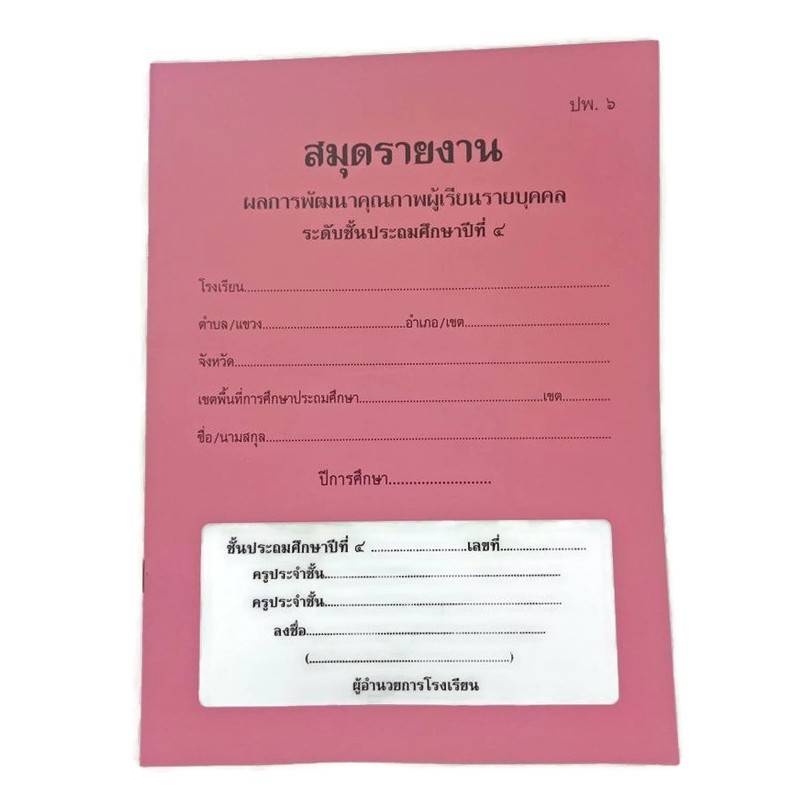 ปพ. ๖
สมุดรายงาน
ผลการพัฒนาคุณภาพผู้เรียนรายบุคคล
ระดับชั้นประถมศึกษาปีที่ ๔
โรงเรียน....................................................................................................
ตำบล/แขวง.......................................อำเภอ/เขต.......................................
จังหวัด....................................................................................................
เขตพื้นที่การศึกษาประถมศึกษา..................................................เขต.............
ชื่อ/นามสกุล...........................................................................................
ปีการศึกษา..........................
ชั้นประถมศึกษาปีที่ ๔ ..........................เลขที่........................
ครูประจำชั้น................................................................
ครูประจำชั้น................................................................
ลงชื่อ................................................................
(.......................................................)
ผู้อำนวยการโรงเรียน